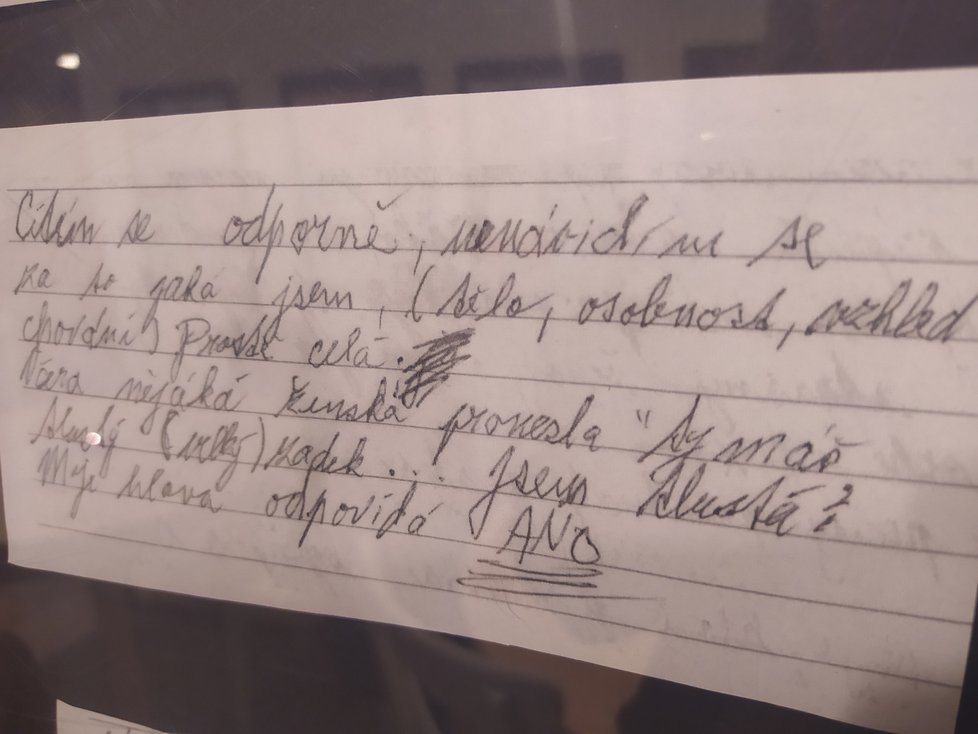 Cítím se odporně, nenávidím se
za to jaká jsem, (tělo, osobnost, vzhled
chování) Prostě celá.
Včera nějáká ženská pronesla "ty máš
tlustý (velký) zadek... Jsem tlustá?
Mje hlava odpovídá ANO